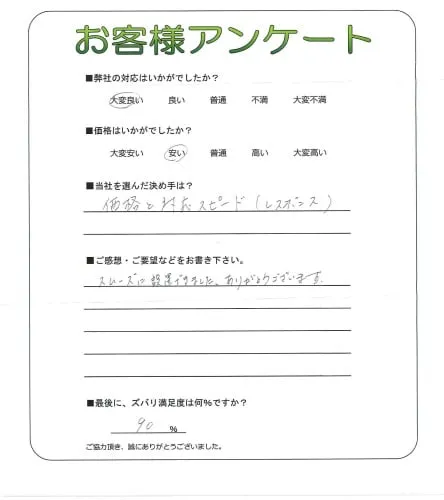 お客様アンケート
■弊社の対応はいかがでしたか?
大変良い 良い 普通 不満 大変不満
■価格はいかがでしたか?
大変安い 安い 普通 高い 大変高い
■当社を選んだ決め手は?
価格と対応スピード(レスポンス)
■ご感想・ご要望などをお書き下さい。
スムーズに設置できました。ありがとうございます。
■最後に、ズバリ満足度は何%ですか?
90 %
ご協力頂き、誠にありがとうございました。